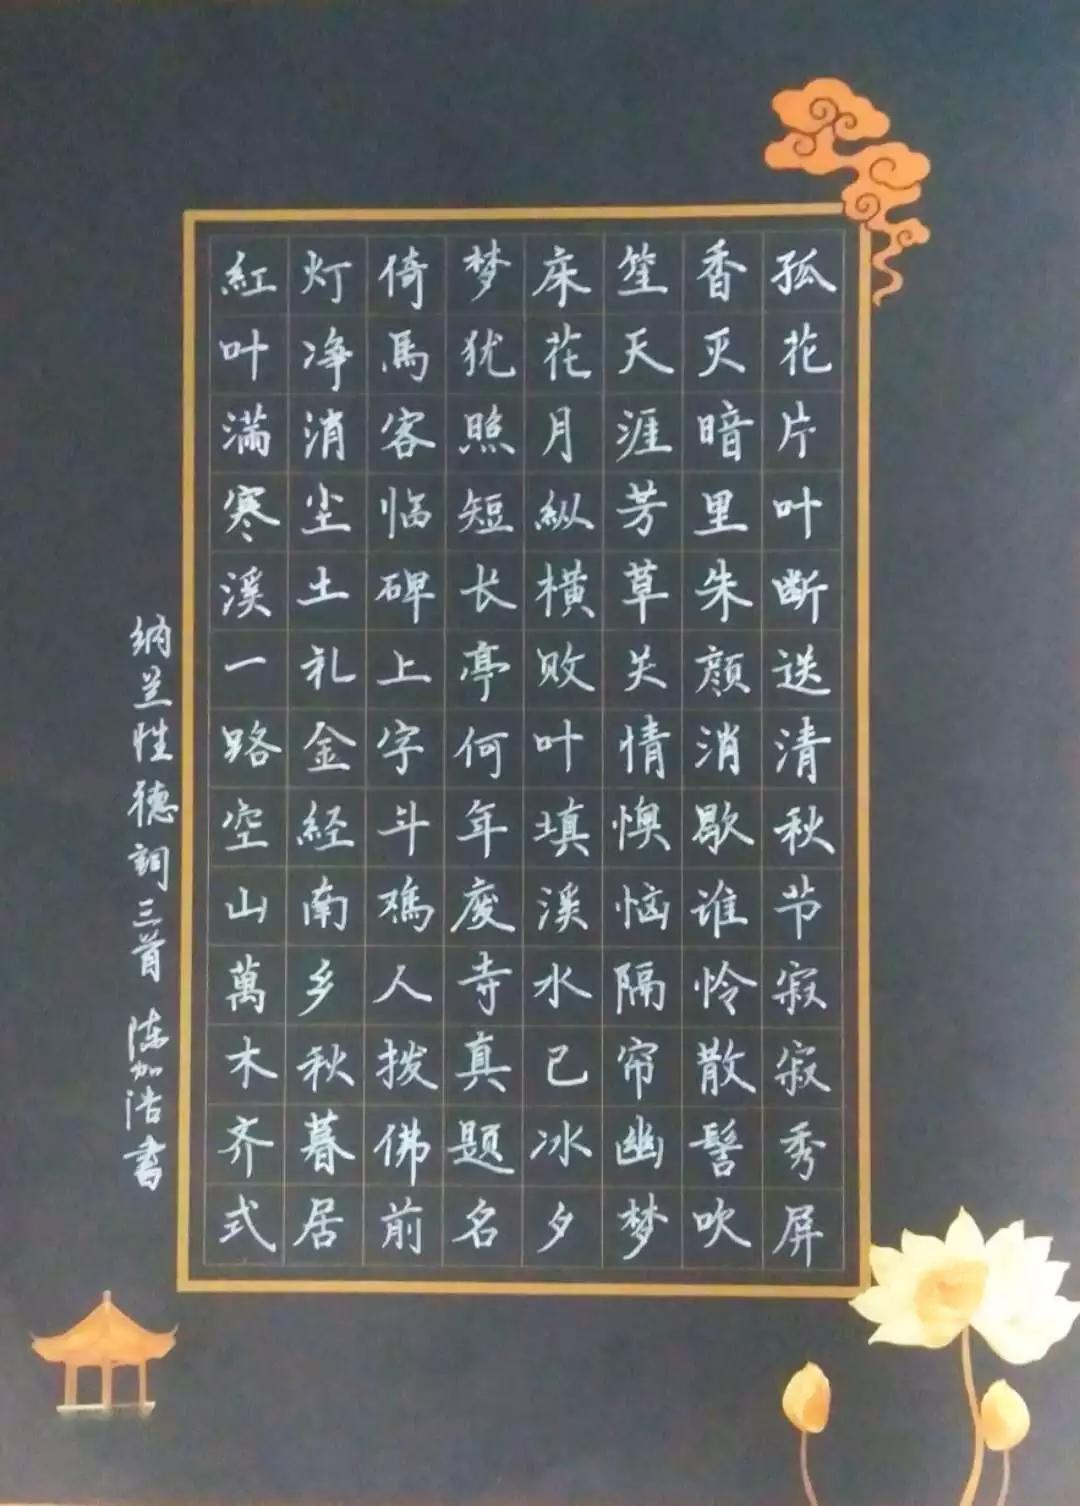 孤花片叶断送清秋节寂寂秀屏
香灭暗里朱颜消歇谁怜散髻吹
笙天涯芳草关情懊恼隔帘幽梦
床花月纵横败叶填溪水已冰夕
梦犹照短长亭何年废寺真题名
倚馬客临碑上字斗鸡人拨佛前
灯净消尘土礼金经南乡秋暮居
紅叶满寒溪一路空山萬木齐式
纳兰性德词三首 陈加浩書